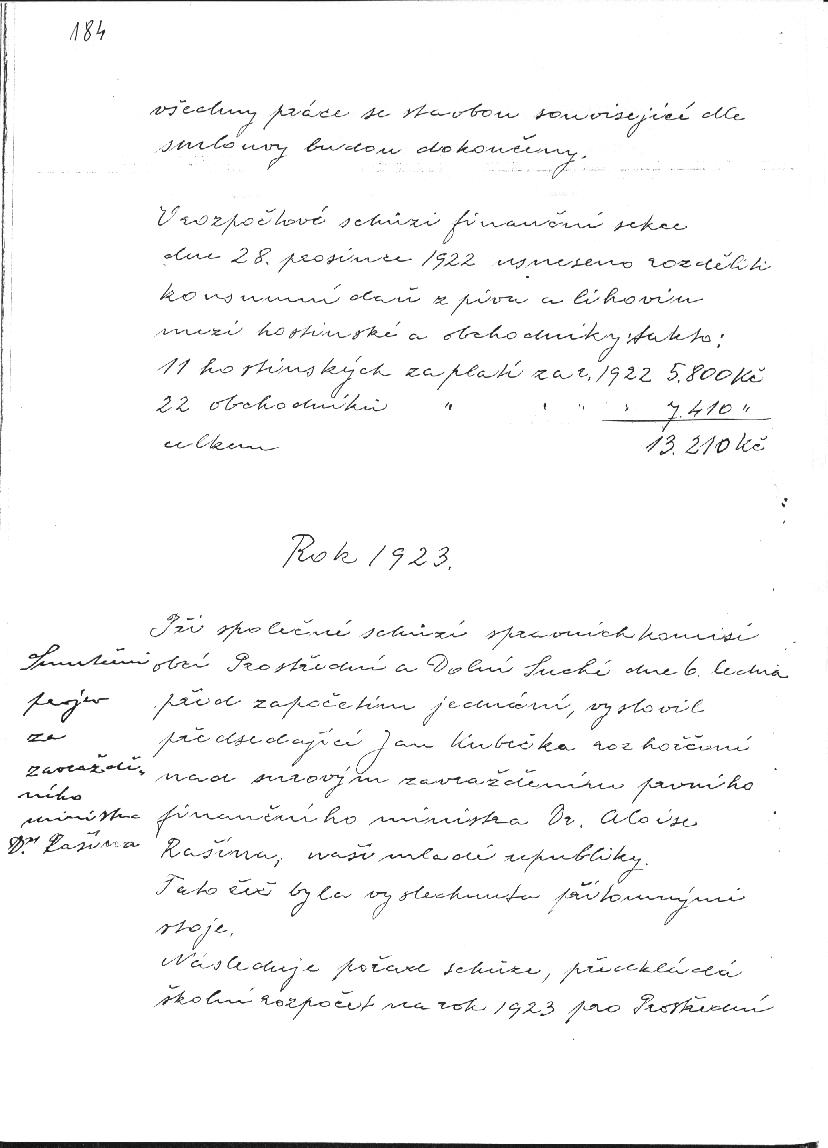 184
všechny práce se stavbou souvisejicí dle
smlouvy budou dokončeny.
V rozpočtové schůzi finanční sekce
dne 28. prosince 1922 usneseno rozděliti
konsumní daň z piva a lihovin
mezi hostinské a obchodníky takto:
11 hostinských zaplatí za r. 1922 5.800 Kč
22 obchodníků " " " " 7.410 "
celkem 13.210 Kč
Rok 1923.
Při společné schůzi správních komisí
obcí Prostřední a Dolní Suché dne 6. ledna
před započetím jednání, vyslovil
předsedající Jan Kubička rozhořčení
nad surovým zavražděním prvního
finančního ministra Dr. Aloise
Rašína, naší mladé republiky.
Tato řeč byla vyslechnuta přítomnými
stoje.
Následuje pořad schůze, předkládá
školní rozpočet na rok 1923 pro Prostřední
Smuteční
projev
za
zavraždě-
ného
ministra
Dra Rašína